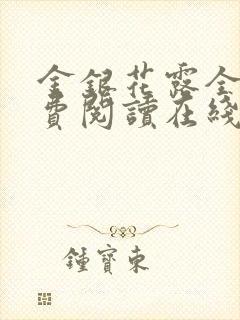 金銀花露全
費閱讀在綫
鍾寶東